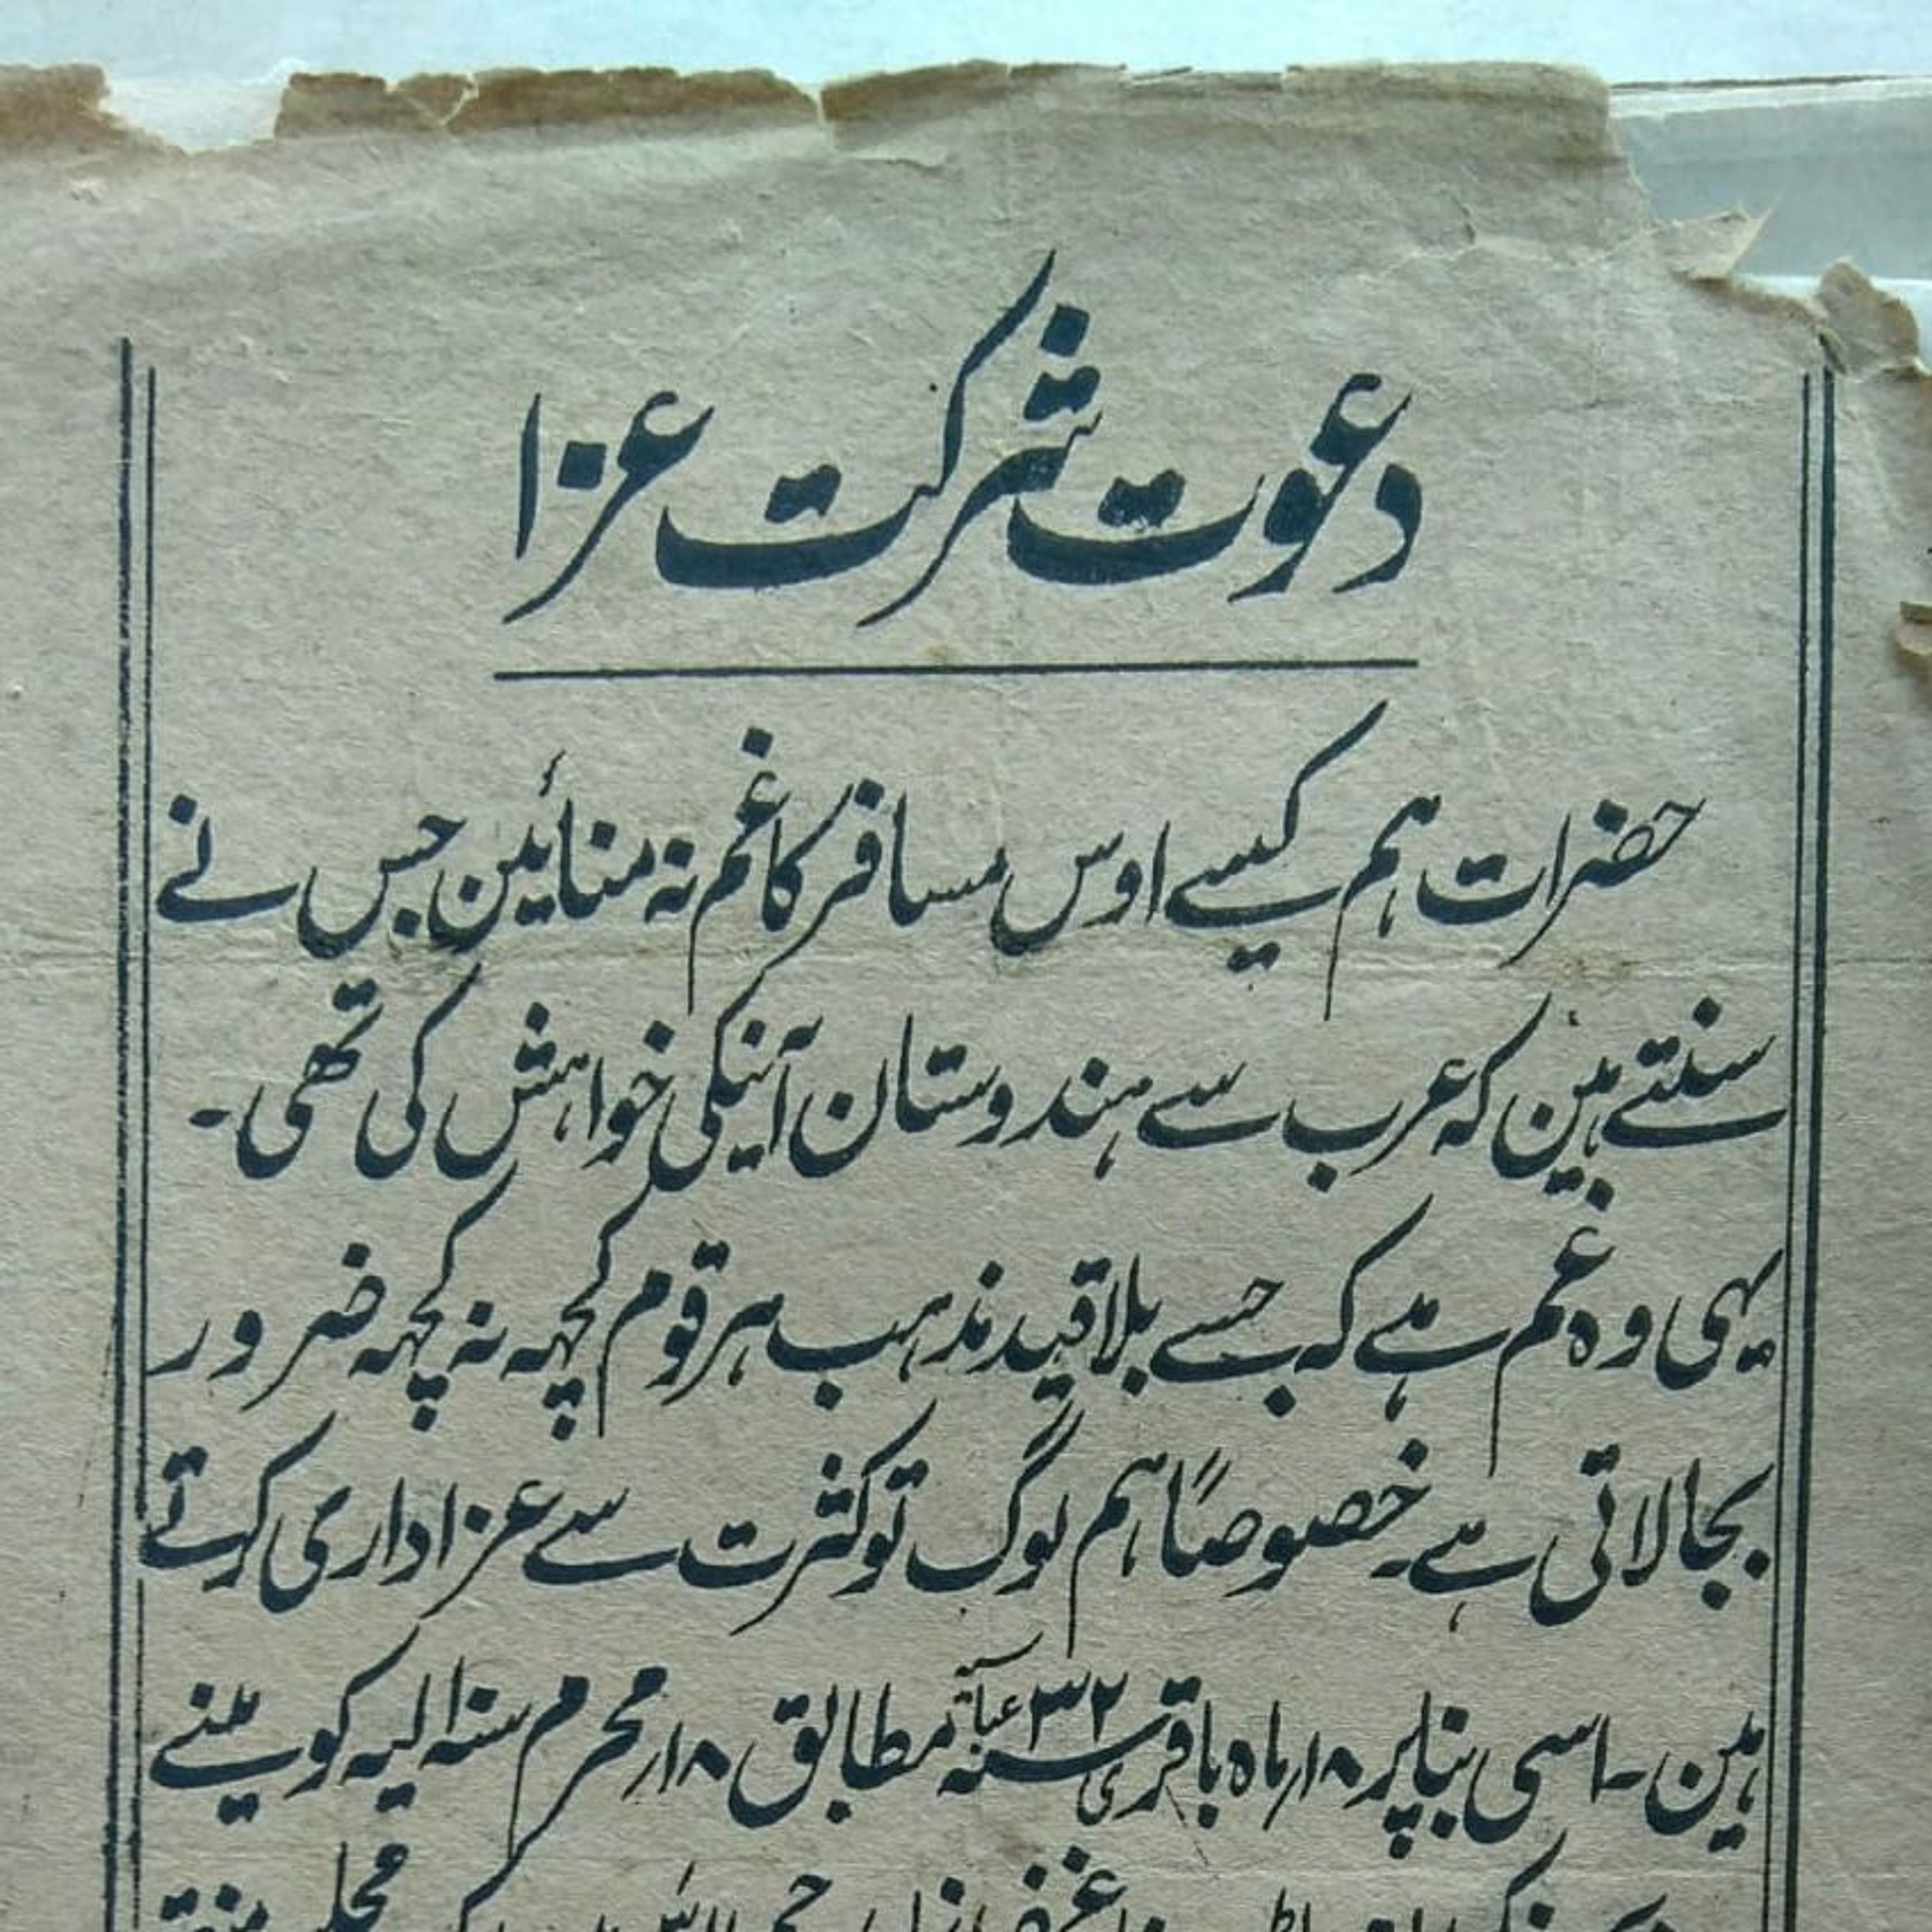 دعوت شرکت عزا
حضرات ہم کیسے اوس مسافر کا غم نہ منائین جس نے
سنتے ہین کہ عرب سے ہندوستان آنیکی خواہش کی تھی۔
یہی وہ غم ہے کہ جسے بلا قید مذہب ہر قوم کچہہ نہ کچہہ ضرور
بجا لاتی ہے۔ خصوصاً ہم لوگ تو کثرت سے عزاداری کرتے
ہین۔ اسی بنا پر ۱۰ر ماہ باقری سنہ ۳۲ مطابق ۱۰ر محرم سنہ الیہ کو یمنے